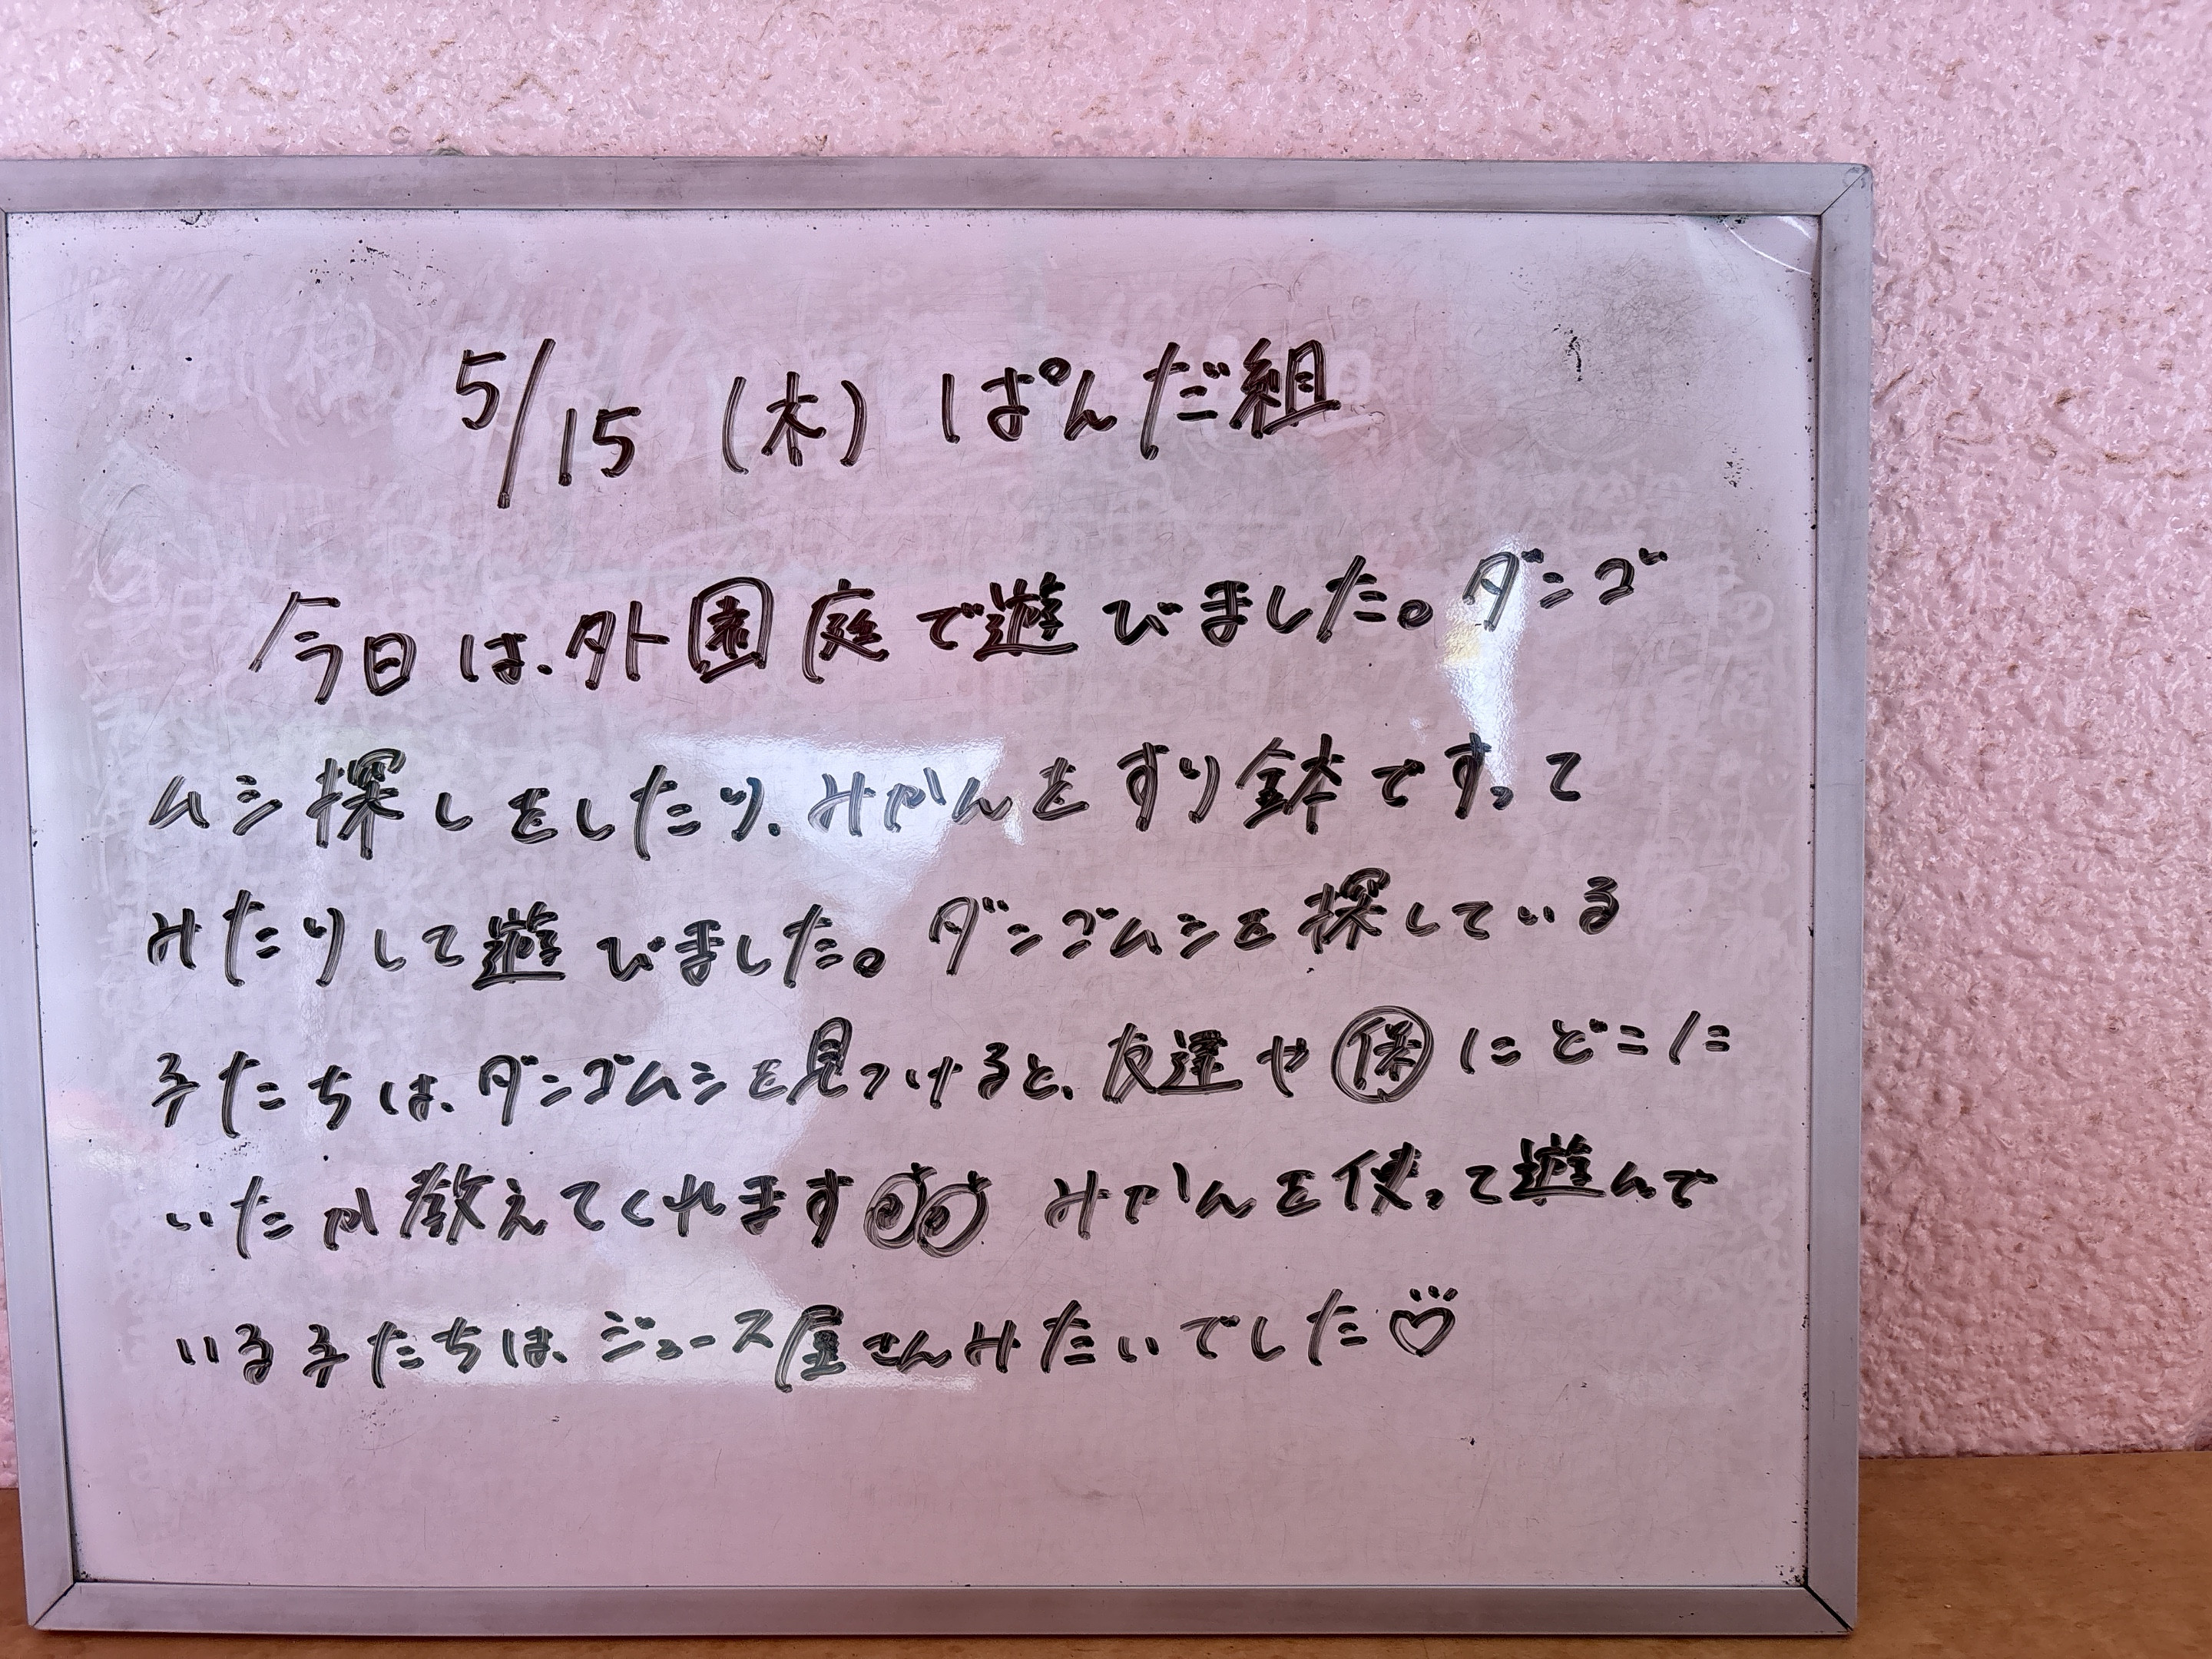 5/15 (木) ぱんだ組
今日は、外園庭で遊びました。ダンゴ
ムシ探しをしたり、みかんをすり鉢ですって
みたりして遊びました。ダンゴムシを探している
子たちは、ダンゴムシを見つけると、友達や㋭にどこに
いたか教えてくれます みかんを使って遊んで
いる子たちは、ジュース屋さんみたいでした♡